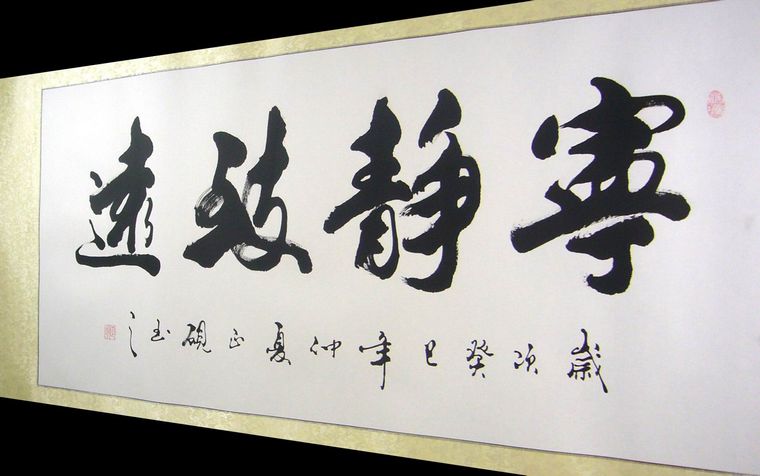 寧靜致遠
歲次癸巳年仲夏正硯书之